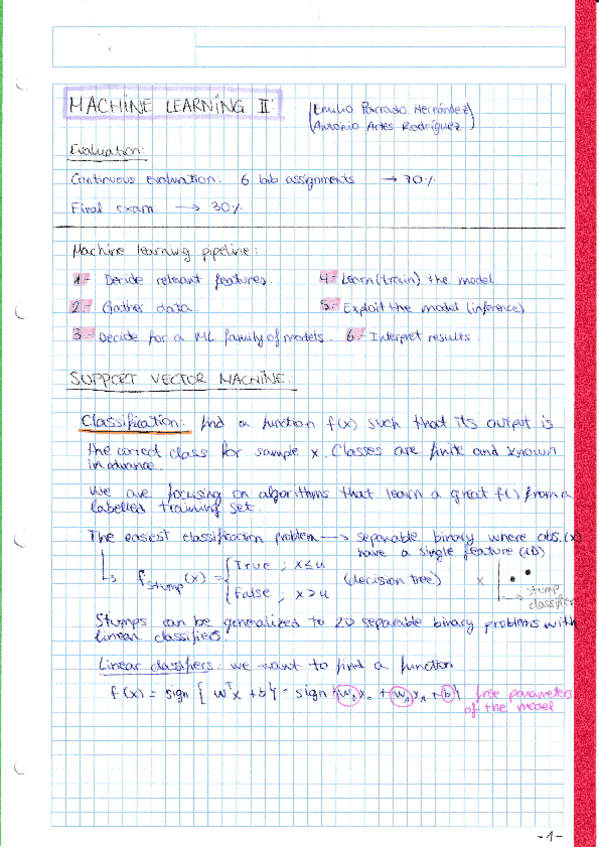 MACHINE LEARNING II: (Emilio Parrado Hernández)
(Antonio Artes Rodríguez)
Evaluation:
Continuous evaluation: 6 lab assignments → 70%
Final exam → 30%
Machine learning pipeline:
1- Decide relevant features. 4- Learn (train) the model
2- Gather data. 5- Exploit the model (inference)
3- Decide for a ML family of models. 6- Interpret results
SUPPORT VECTOR MACHINE:
Classification: find a function f(x) such that its output is
the correct class for sample x. Classes are finite and known
in advance.
We are focusing on algorithms that learn a great f() from a
labelled training set.
The easiest classification problem → separable binary where obs. (x)
have a single feature (1D)
f stump (x) = { True ; x ≤ u
False ; x > u (decision tree) x
stump
classifier
Stumps can be generalized to 2D separable binary problems with
linear classifiers.
Linear classifiers: we want to find a function
f(x) = sign { wᵀx + b } = sign { w₀x₀ + w₁x₁ + b } free parameters
of the model
-1-